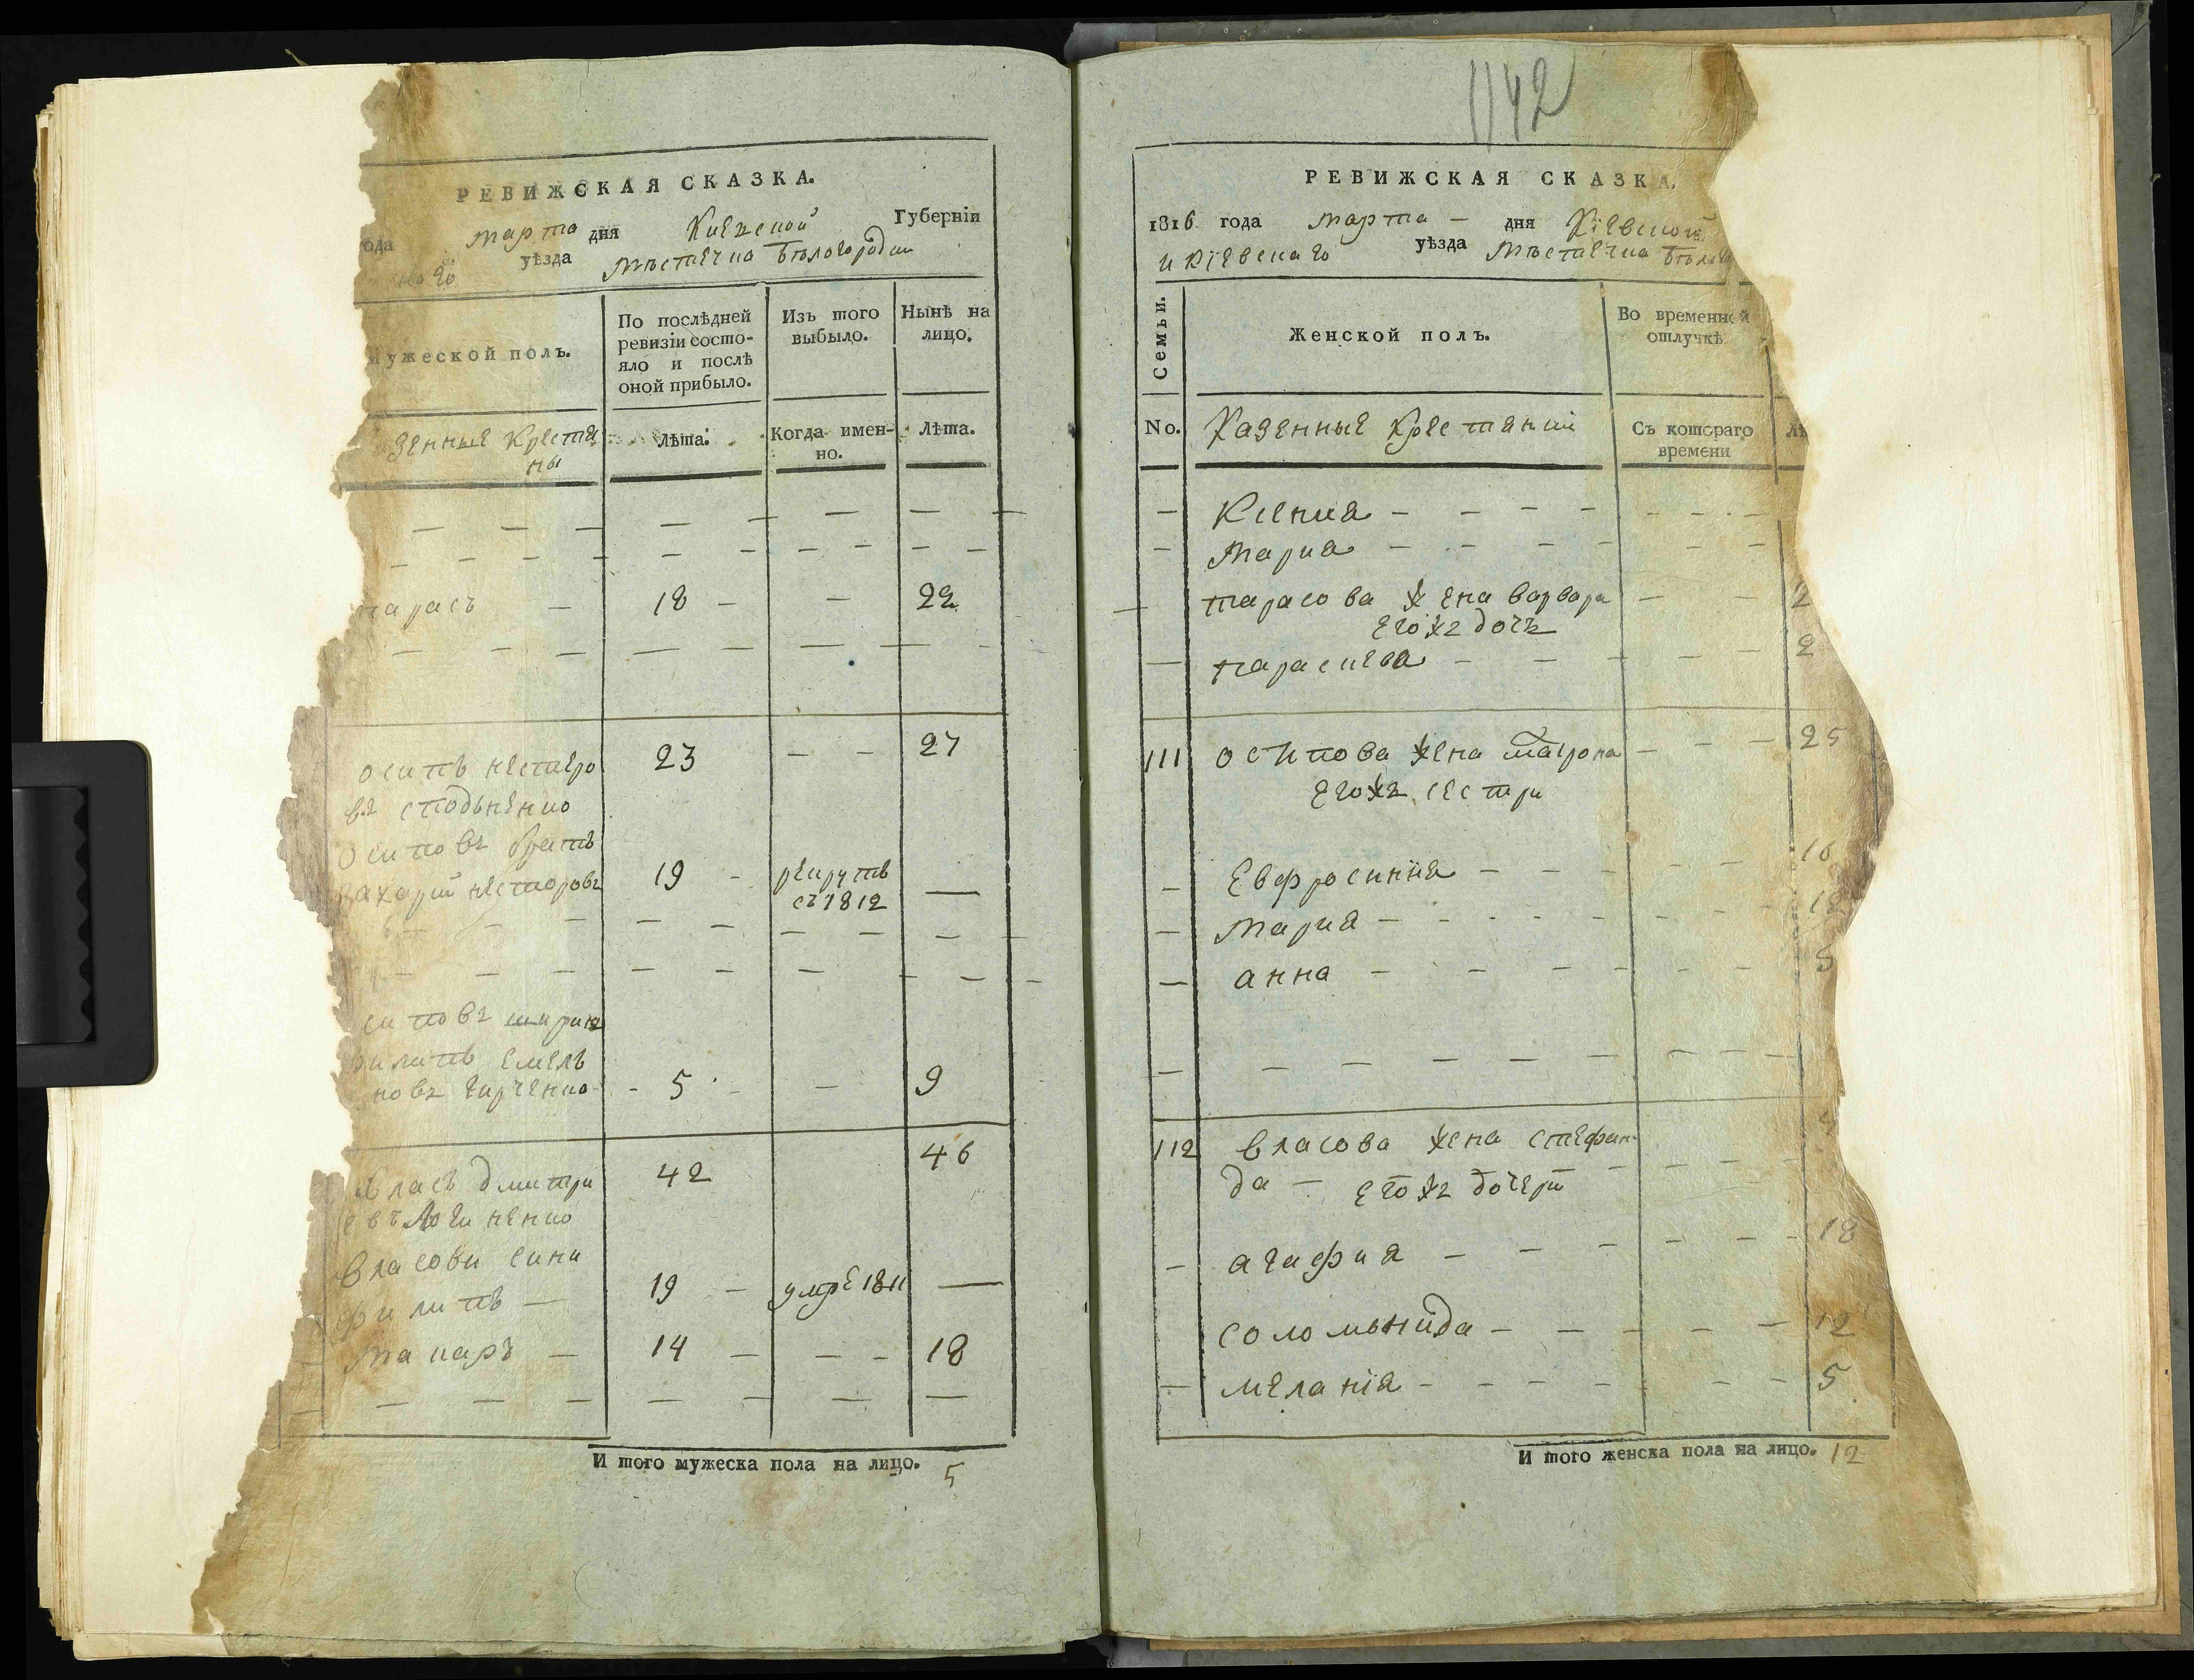 РЕВИЖСКАЯ СКАЗКА.
ода марта дня Киевской Губерніи
наго уѣзда мѣстечка Бѣлогородки
Мужеской полъ.
По послѣдней ревизіи состо-
яло и послѣ
оной прибыло.
Изъ того
выбыло.
Нынѣ на
лицо.
зенные Крестя
ны
Лѣта.
Когда имен-
но.
Лѣта.
тарасъ — 18 — — 22
осипъ нестеро 23 — — 27
въ
осиповъ братъ
захарий несторовъ 19 - рекрутъ —
съ 1812
сиповъ
филипъ емелъ
новъ - 5 - — 9
власъ дмитри 42 46
евъ
власови сини
филипъ — 19 — умре 1811 —
макаръ — 14 — — - 18
И того мужеска пола на лицо. 5
1142
РЕВИЖСКАЯ СКАЗКА.
1816 года марта — дня Кіевской
и кіевскаго уѣзда мѣстечка Бѣлого
Семьи.
Женской полъ.
Во временной
отлучкѣ
No. Казенные крестянки
Съ котораго
времени
Лѣ
— Ксения — — — —
— Мария — — — —
— тарасова жена варвара — — 2
егожъ дочъ
— параскева — — — 2
111 осипова жена матрона — — — 25
егожъ сестри
— Евфросиния — — — 16
— Мария — — — 18
— анна — — — 5
112 власова жена стефани
да — егожъ дочери
— агафия — — — 18
соломонида — — — 12
— меланія — — — 5
И того женска пола на лицо. 12